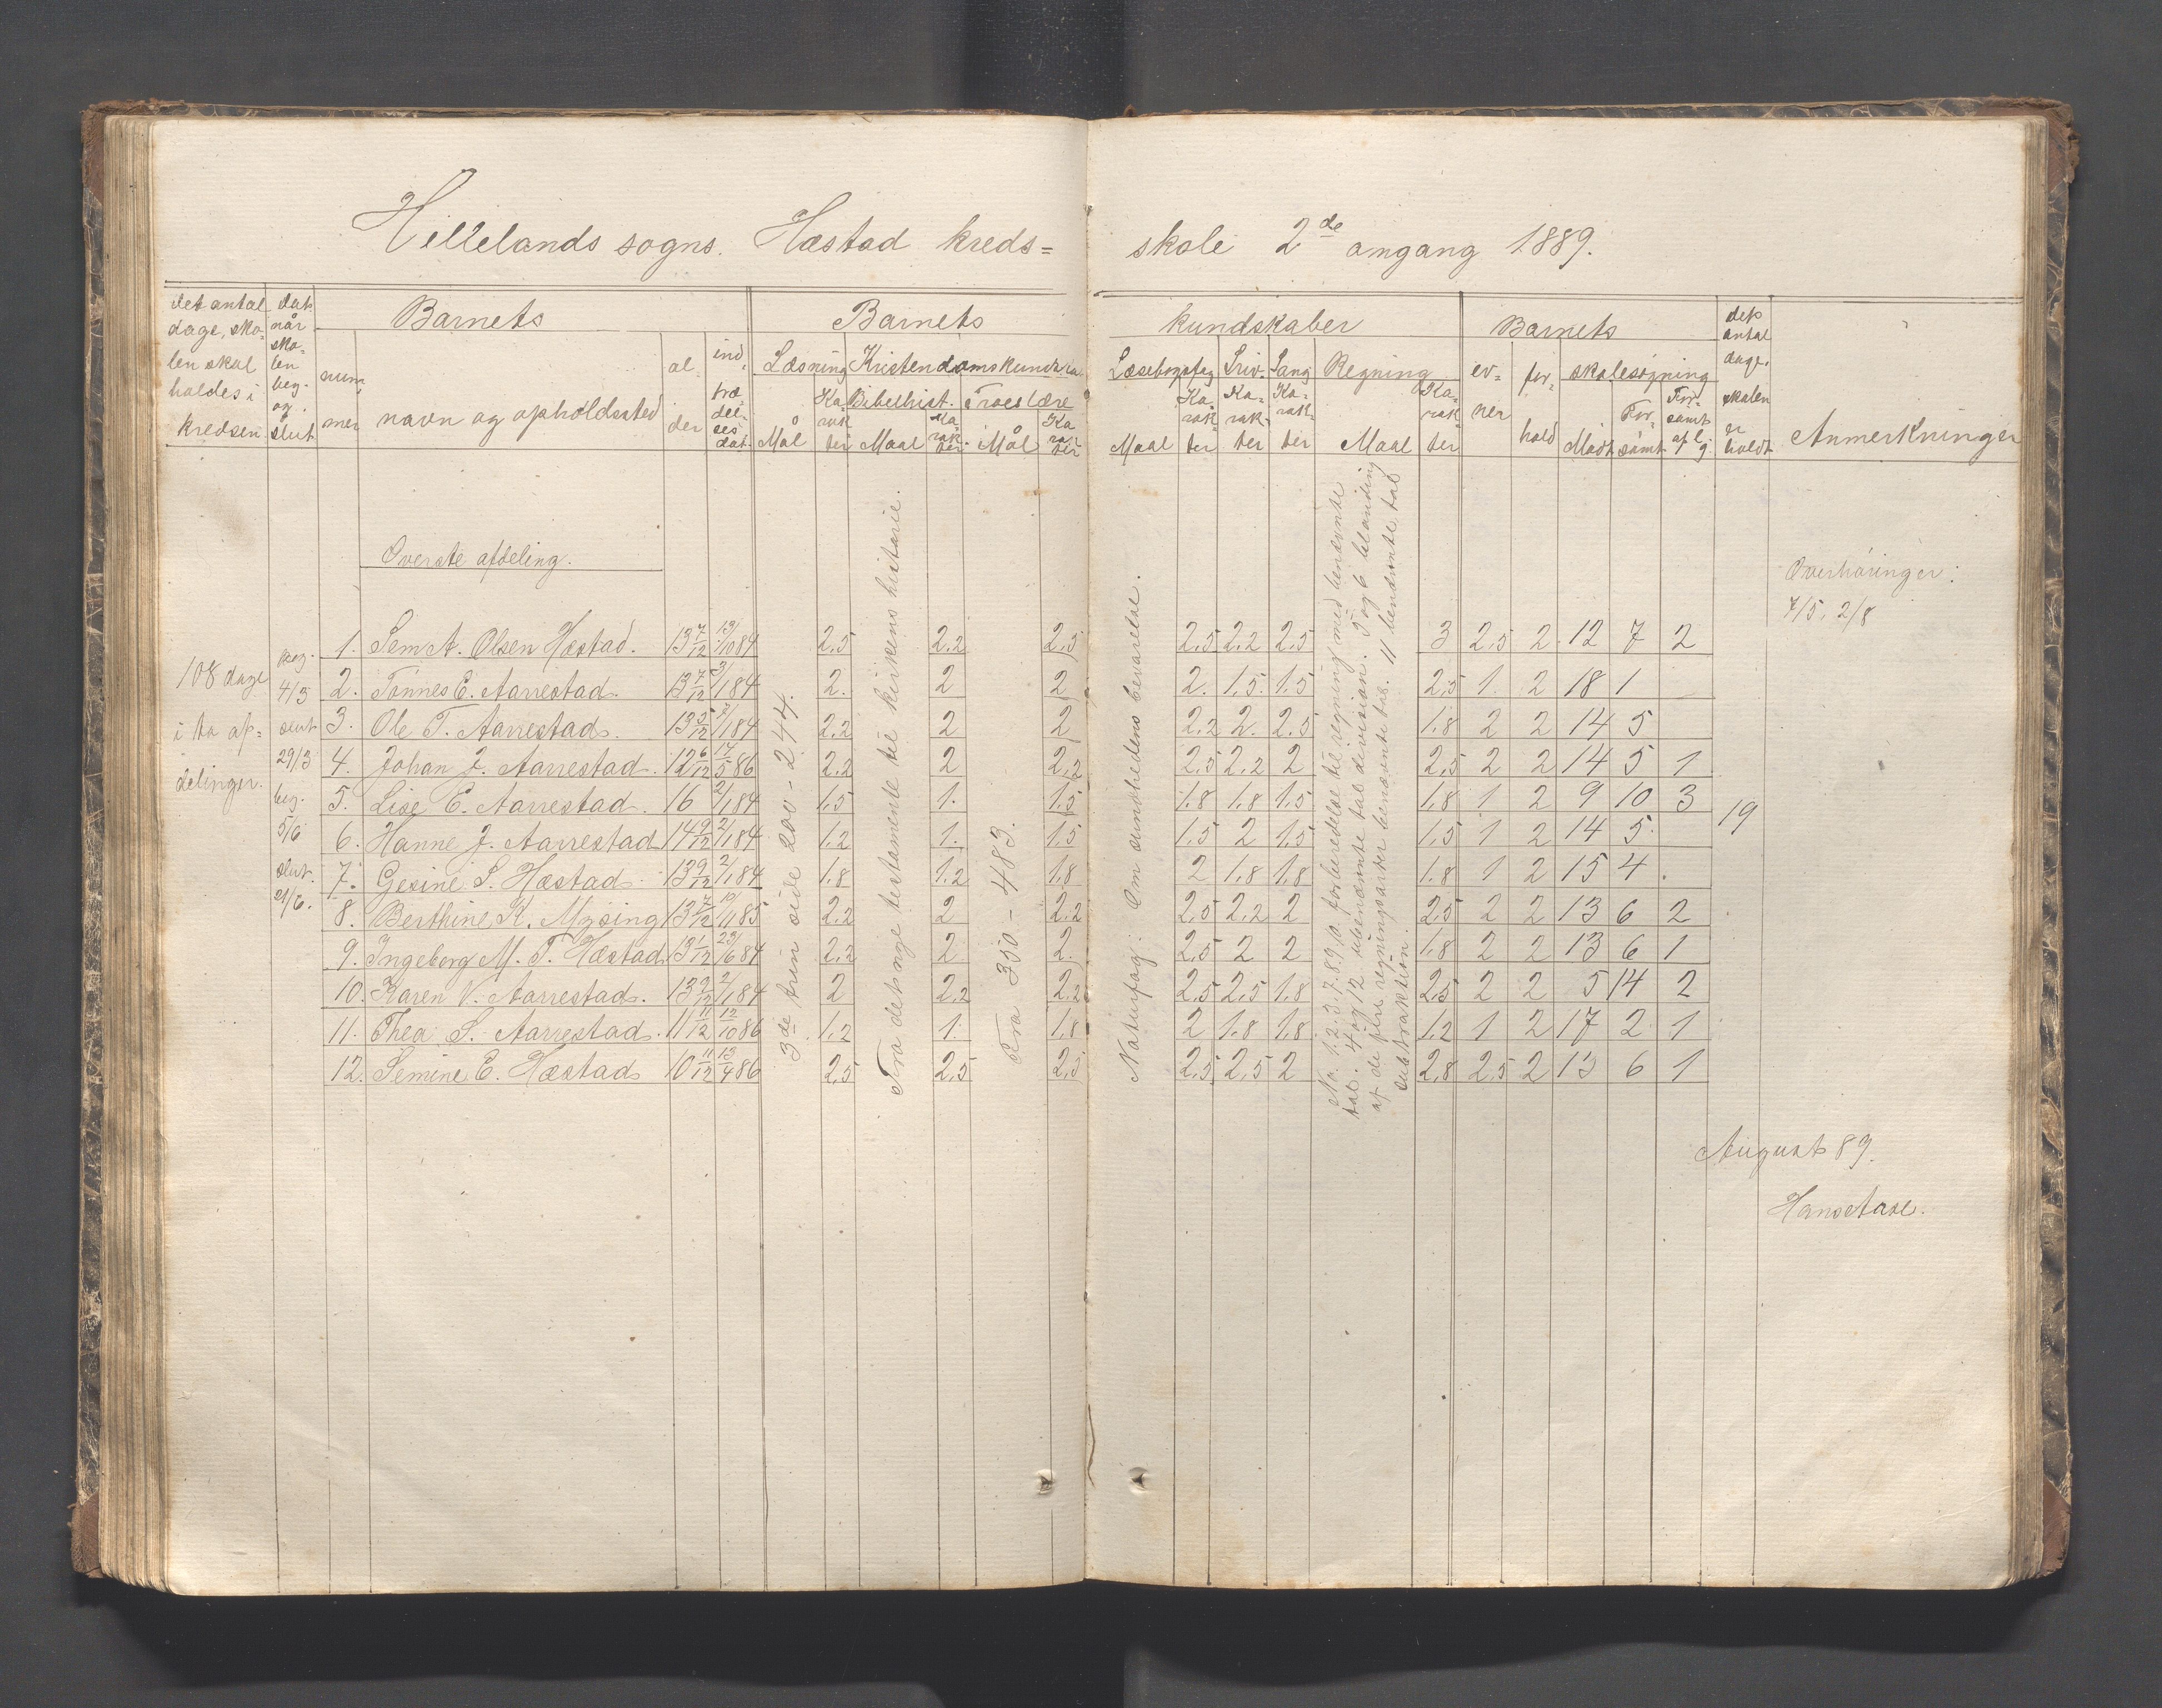 Hillelands sogns. Hæstad kreds=
skole 2de omgang 1889.
det antal dage, skolen skal holdes i kredsen
dat. når skolen beg. og slut.
Barnets
nummer
navn og opholdssted
alder
indtrædelses dat.
Barnets kundskaber
Læsning
Mål
Karakter
Kristendomskundskab
Bibelhist.
Maal
Karakter
Troeslære
Mål
Karakter
Læsebogsfag
Maal
Karakter
Skriv.
Karakter
Sang
Karakter
Regning
Maal
Karakter
Barnets
evner
forhold
skolesøgning
Mødt
Forsømt
Forsømt af l. g.
det antal dage, skolen er holdt
Anmerkninger
Øverste afdeling.
108 dage i to afdelinger.
beg. 4/3 slut 29/3 beg. 5/6 slut. 29/6.
3de trin side 200 - 244.
Fra det nye testamente til kirkens historie.
Fra 350 - 483.
Naturfag: Om sundhedens bevarelse.
No. 1. 2. 3. 7. 8. 9. 10. forberedelse til regning med benævnte
tal. 4 og 12 ubenævnte tal division. 5 og 6 blanding
af de fire regningsarter benævnte tal. 11 benævnte tal
subtraktion.
1. Sem A. Olsen Hæstad. 13 7/12 13/10 84 2,5 2,2 2,5 2,5 2,2 2,5 3 2,5 2 12 7 2
2. Tønnes E. Aarrestad. 13 7/12 3/1 84 2. 2 2 2. 1,5 1,5 2,5 1. 2 18 1
3. Ole T. Aarrestad. 13 5/12 2/1 84 2,2 2 2 2,2 2. 2,5 1,8 2 2 14 5
4. Johan J. Aarrestad. 12 6/12 14/5 86 2,2 2 2,2 2,5 2,2 2 2,5 2 2 14 5 1
5. Lise E. Aarrestad. 16 2/1 84 1,5 1. 1,5 1,8 1,8 1,5 1,8 1 2 9 10 3
6. Hanne J. Aarrestad 14 9/12 2/1 84 1,2 1. 1,5 1,5 2 1,5 1,5 1 2 14 5.
7. Gesine S. Hæstad. 13 9/12 2/1 84 1,8 1,2 1,8 2 1,8 1,8 1,8 1 2 15 4
8. Berthine K. Mysing 13 7/12 19/1 85 2,2 2 2,2 2,5 2,2 2 2,5 2 2 13 6 2
9. Ingeborg M. T. Hæstad 13 1/12 23/6 84 2,2 2 2. 2,5 2 2 1,8 2 2 13 6 1
10. Karen V. Aarrestad. 13 9/12 2/1 84 2 2,2 2,2 2,5 2,5 1,8 2,5 2 2 5 14 2
11. Thea S. Aarrestad. 11 11/12 12/10 86 1,2 1. 1,8 2 1,8 1,8 1,2 1 2 17 2 1
12. Semine E. Hæstad 10 11/12 13/4 86 2,5 2,5 2,5 2,5 2,5 2 2,8 2,5 2 13 6 1
19
Overhøringer:
7/5, 2/8
August 89.
Hans Aase.